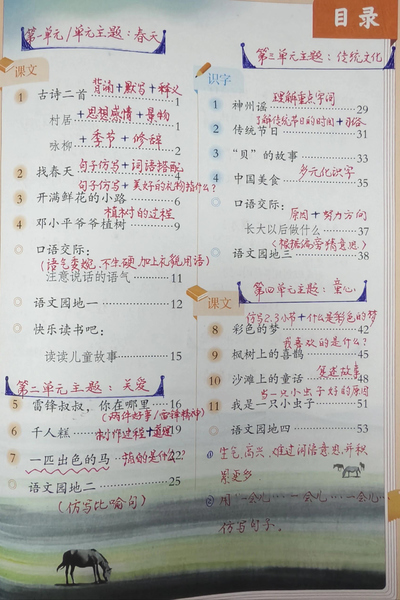 目录
第一单元/单元主题:春天
课文
1 古诗二首 背诵+默写+释义 1
村居 +思想感情+景物
咏柳 +季节+修辞 2
2 找春天 句子仿写+词语搭配 4
句子仿写+美好的礼物指什么?
3 开满鲜花的小路 6
4 邓小平爷爷植树 植树的过程 9
口语交际:
(语气委婉,不生硬,加上礼貌用语)
注意说话的语气 11
语文园地一 12
快乐读书吧:
读读儿童故事 15
第二单元主题:关爱
5 雷锋叔叔,你在哪里 16
(两件好事/雷锋精神)
6 千人糕 制作过程+道理 19
7 一匹出色的马 指的是什么? 22
语文园地二 25
(仿写比喻句)
第三单元主题:传统文化
识字
1 神州谣 理解重点字词 29
了解传统节日的时间+习俗
2 传统节日 31
3 “贝”的故事 33
4 中国美食 多元化识字 35
口语交际:
原因+努力方向
长大以后做什么 37
(根据偏旁猜意思)
语文园地三 38
第四单元主题:童心
课文
仿写2.3小节+什么是彩色的梦
8 彩色的梦 42
我喜欢的是什么?
9 枫树上的喜鹊 45
10 沙滩上的童话 复述故事 48
当一只小虫子好的原因
11 我是一只小虫子 51
语文园地四 53
① 生气,高兴,难过词语意思,并积
累更多
② 用“一会儿…一会儿…一会儿…
仿写句子。